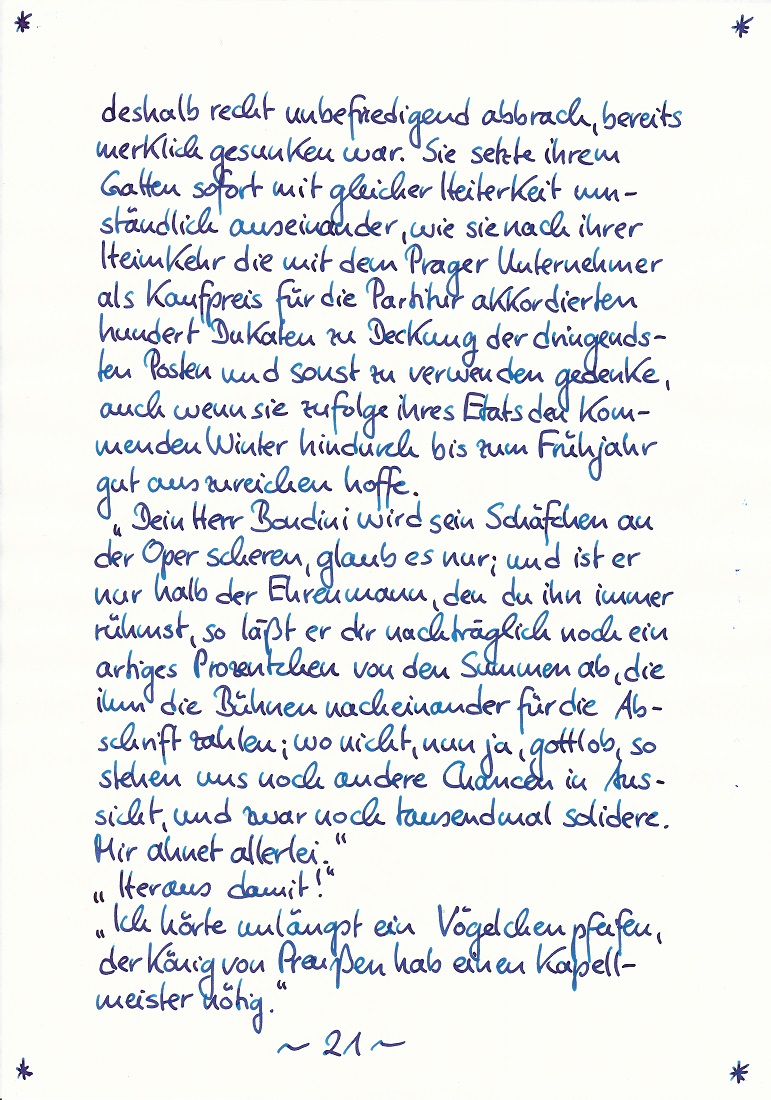 deshalb recht unbefriedigend abbrach, bereits
merklich gesunken war. Sie setzte ihrem
Gatten sofort mit gleicher Heiterkeit um-
ständlich auseinander, wie sie nach ihrer
Heimkehr die mit dem Prager Unternehmer
als Kaufpreis für die Partitur akkordierten
hundert Dukaten zu Deckung der dringends-
ten Posten und sonst zu verwenden gedenke,
auch wenn sie zufolge ihres Etats den kom-
menden Winter hindurch bis zum Frühjahr
gut auszureichen hoffe.
„Dein Herr Bondini wird sein Schäfchen an
der Oper scheren, glaub es nur; und ist er
nur halb der Ehrenmann, den du ihn immer
rühmst, so läßt er dir nachträglich noch ein
artiges Prozentchen von den Summen ab, die
ihm die Bühnen nacheinander für die Ab-
schrift zahlen; wo nicht, nun ja, gottlob, so
stehen uns noch andere Chancen in Aus-
sicht, und zwar noch tausendmal solidere.
Mir ahnet allerlei.“
„Heraus damit!“
„Ich hörte unlängst ein Vögelchen pfeifen,
der König von Preußen hab einen Kapell-
meister nötig.“
~ 21 ~